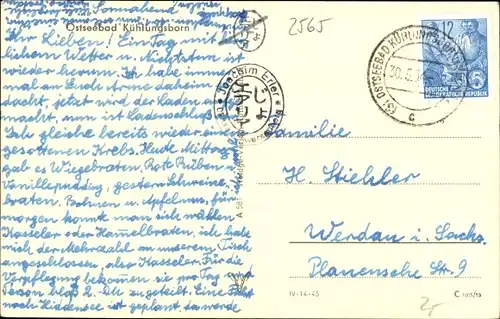 ins Sonnabend
Ostseebad Kühlungsborn
Ihr Lieben! Ein Tag mit
lichem Wetter u. Nichtstun ist
wieder herum. Ich habe immer
mal an Ende Arne daheim ge-
dacht, jetzt wird der Laden auf-
macht, nun ist Ladenschluß.
Ich gleiche bereits wieder einem
gesottenen Krebs. Heute Mittag
gab es Wiegebraten, Rote Rüben u.
Vanillepudding, gestern Schweine-
braten, Bohnen u. Apfelmus, für
morgen konnte man sich wählen
Kasseler oder Hammelbraten, ich habe
mich der Mehrzahl an unserem Tisch
angeschlossen, also Kasseler. Für die
Verpflegung bekommen sie pro Tag und
Person bloß 2.- DM zugeteilt. Eine Fahrt
nach Hiddensee ist geplant, da werde
2565
Joachim Erler
OSTSEEBAD KÜHLUNGSBORN
30.5.
c
12
DEUTSCHE
DEMOKRATISCHE REPUBLIK
Familie
H. Stiehler
Werdau i. Sachs.
Plauensche Str. 9
IV-14-45
25